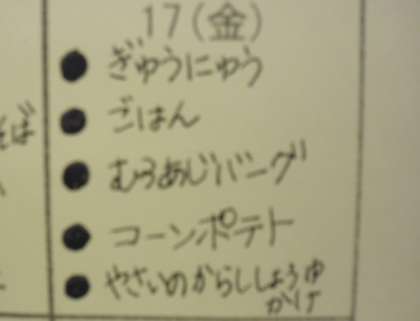 17(金)
ぎゅうにゅう
ごはん
そば
むろあじバーグ
コーンポテト
やさいのからししょうゆ
かけ